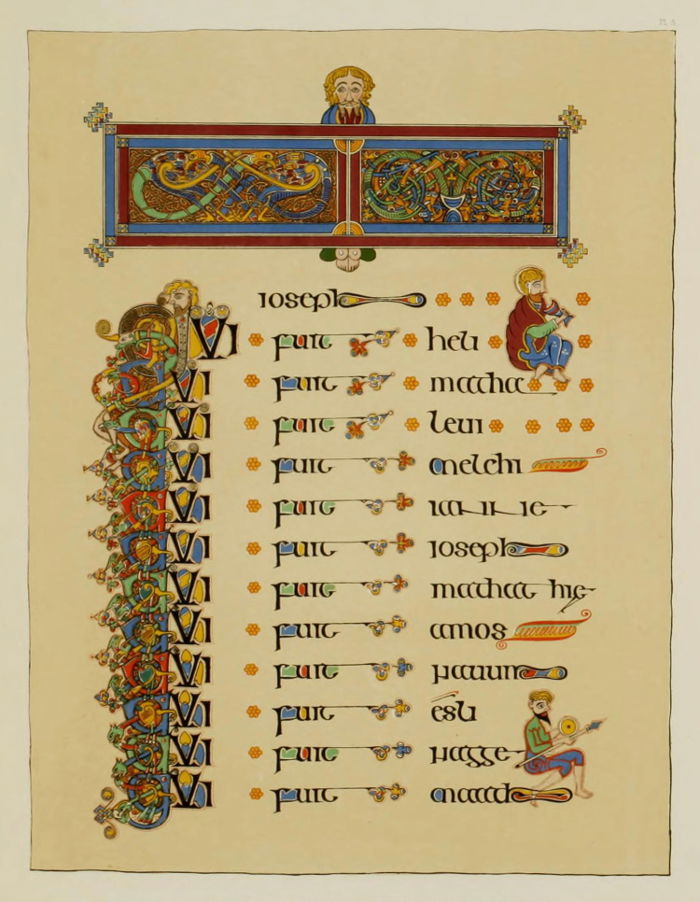 ioseph
QVI fuit heli
QVI fuit matha
QVI fuit leui
QVI fuit melchi
QVI fuit ianne
QVI fuit ioseph
QVI fuit mathathie
QVI fuit amos
QVI fuit nauum
QVI fuit esli
QVI fuit nagge
QVI fuit maath